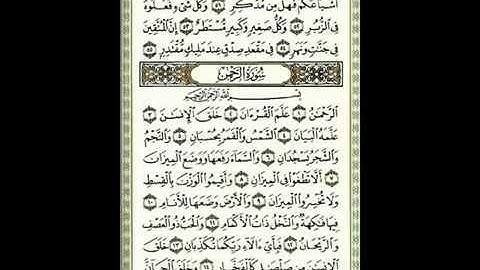 أَشْيَاعَكُمْ فَهَلْ مِن مُّدَّكِرٍ ٥١ وَكُلُّ شَىْءٍ فَعَلُوهُ
فِى ٱلزُّبُرِ ٥٢ وَكُلُّ صَغِيرٍ وَكَبِيرٍ مُّسْتَطَرٌ ٥٣ إِنَّ ٱلْمُتَّقِينَ
فِى جَنَّٰتٍ وَنَهَرٍ ٥٤ فِى مَقْعَدِ صِدْقٍ عِندَ مَلِيكٍ مُّقْتَدِرٍ ٥٥
سُورَةُ الرَّحْمٰن
بِسْمِ ٱللَّهِ ٱلرَّحْمَٰنِ ٱلرَّحِيمِ
ٱلرَّحْمَٰنُ ١ عَلَّمَ ٱلْقُرْءَانَ ٢ خَلَقَ ٱلْإِنسَٰنَ ٣
عَلَّمَهُ ٱلْبَيَانَ ٤ ٱلشَّمْسُ وَٱلْقَمَرُ بِحُسْبَانٍ ٥ وَٱلنَّجْمُ
وَٱلشَّجَرُ يَسْجُدَانِ ٦ وَٱلسَّمَآءَ رَفَعَهَا وَوَضَعَ ٱلْمِيزَانَ
٧ أَلَّا تَطْغَوْا۟ فِى ٱلْمِيزَانِ ٨ وَأَقِيمُوا۟ ٱلْوَزْنَ بِٱلْقِسْطِ
وَلَا تُخْسِرُوا۟ ٱلْمِيزَانَ ٩ وَٱلْأَرْضَ وَضَعَهَا لِلْأَنَامِ ١٠
فِيهَا فَٰكِهَةٌ وَٱلنَّخْلُ ذَاتُ ٱلْأَكْمَامِ ١١ وَٱلْحَبُّ ذُو ٱلْعَصْفِ
وَٱلرَّيْحَانُ ١٢ فَبِأَىِّ ءَالَآءِ رَبِّكُمَا تُكَذِّبَانِ ١٣ خَلَقَ
ٱلْإِنسَٰنَ مِن صَلْصَٰلٍ كَٱلْفَخَّارِ ١٤ وَخَلَقَ ٱلْجَآنَّ